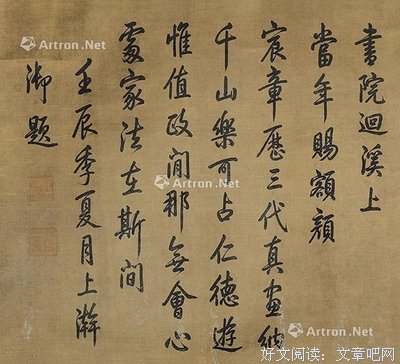 書院迴溪上
當年賜額顏
宸章歷三代真畫納
千山樂可占仁德遊
惟值政閒那無會心
處家法在斯間
壬辰季夏月上澣
御題
Artron.Net
Artron.Net
Artron.Net
Artron.Net
好文阅读：文章吧网